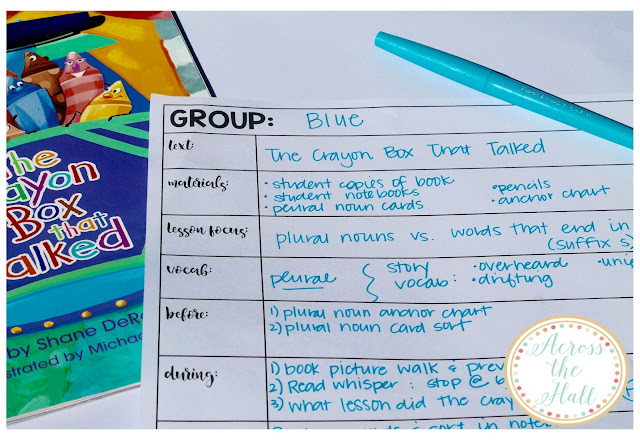 The
Crayon
Box
that
Talked
by Shane DeRo
Illustrated by Michae
GROUP: Blue
text: The Crayon Box That Talked
materials: • student copies of book • pencils
• student notebooks • anchor chart
• plural noun cards
lesson focus: plural nouns vs. words that end in
(suffix s)
vocab: plural { story • overheard • uni
vocab: • drifting
before: 1) plural noun anchor chart
2) plural noun card sort
during: 1) book picture walk & prev
2) Read whisper : stop @ 6
3) what lesson did the cray
sort in noteb
Across
the
Hall